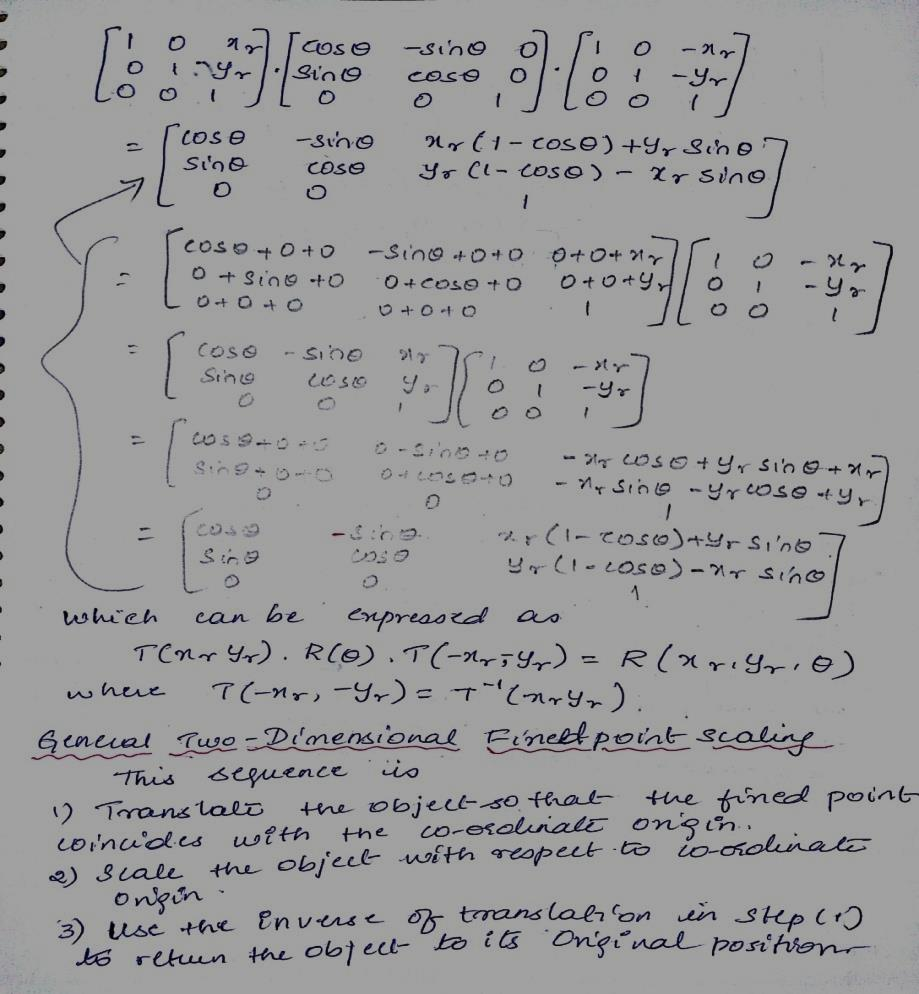 [1 0 xr; 0 1 yr; 0 0 1] . [cosθ -sinθ 0; sinθ cosθ 0; 0 0 1] . [1 0 -xr; 0 1 -yr; 0 0 1]
= [cosθ -sinθ xr(1-cosθ)+yr sinθ; sinθ cosθ yr(1-cosθ)-xr sinθ; 0 0 1]
= [cosθ+0+0 -sinθ+0+0 0+0+xr; 0+sinθ+0 0+cosθ+0 0+0+yr; 0+0+0 0+0+0 1] [1 0 -xr; 0 1 -yr; 0 0 1]
= [cosθ -sinθ xr; sinθ cosθ yr; 0 0 1] [1 0 -xr; 0 1 -yr; 0 0 1]
= [cosθ+0+0 0-sinθ+0 -xr cosθ+yr sinθ+xr; sinθ+0+0 0+cosθ+0 -xr sinθ-yr cosθ+yr; 0 0 1]
= [cosθ -sinθ xr(1-cosθ)+yr sinθ; sinθ cosθ yr(1-cosθ)-xr sinθ; 0 0 1]
which can be expressed as
T(xr yr) . R(θ) . T(-xr,-yr) = R(xr, yr, θ)
where T(-xr, -yr) = T⁻¹(xr yr).
General Two-Dimensional Fixed point scaling
This sequence is
1) Translate the object so that the fixed point
coincides with the co-ordinate origin.
2) Scale the object with respect to co-ordinate
origin.
3) Use the inverse of translation in step (1)
to return the object to its original position